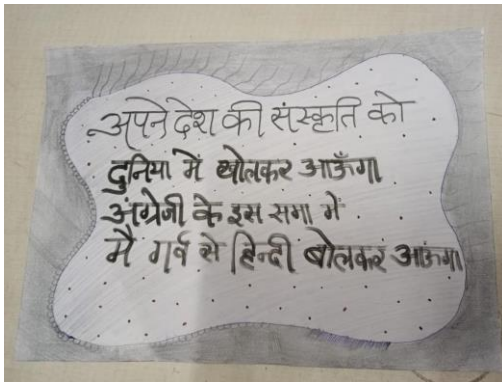 अपने देश की संस्कृति को
दुनिया में घोलकर आऊँगा
अंग्रेजी के इस सभा में
मै गर्व से हिन्दी बोलकर आऊंगा